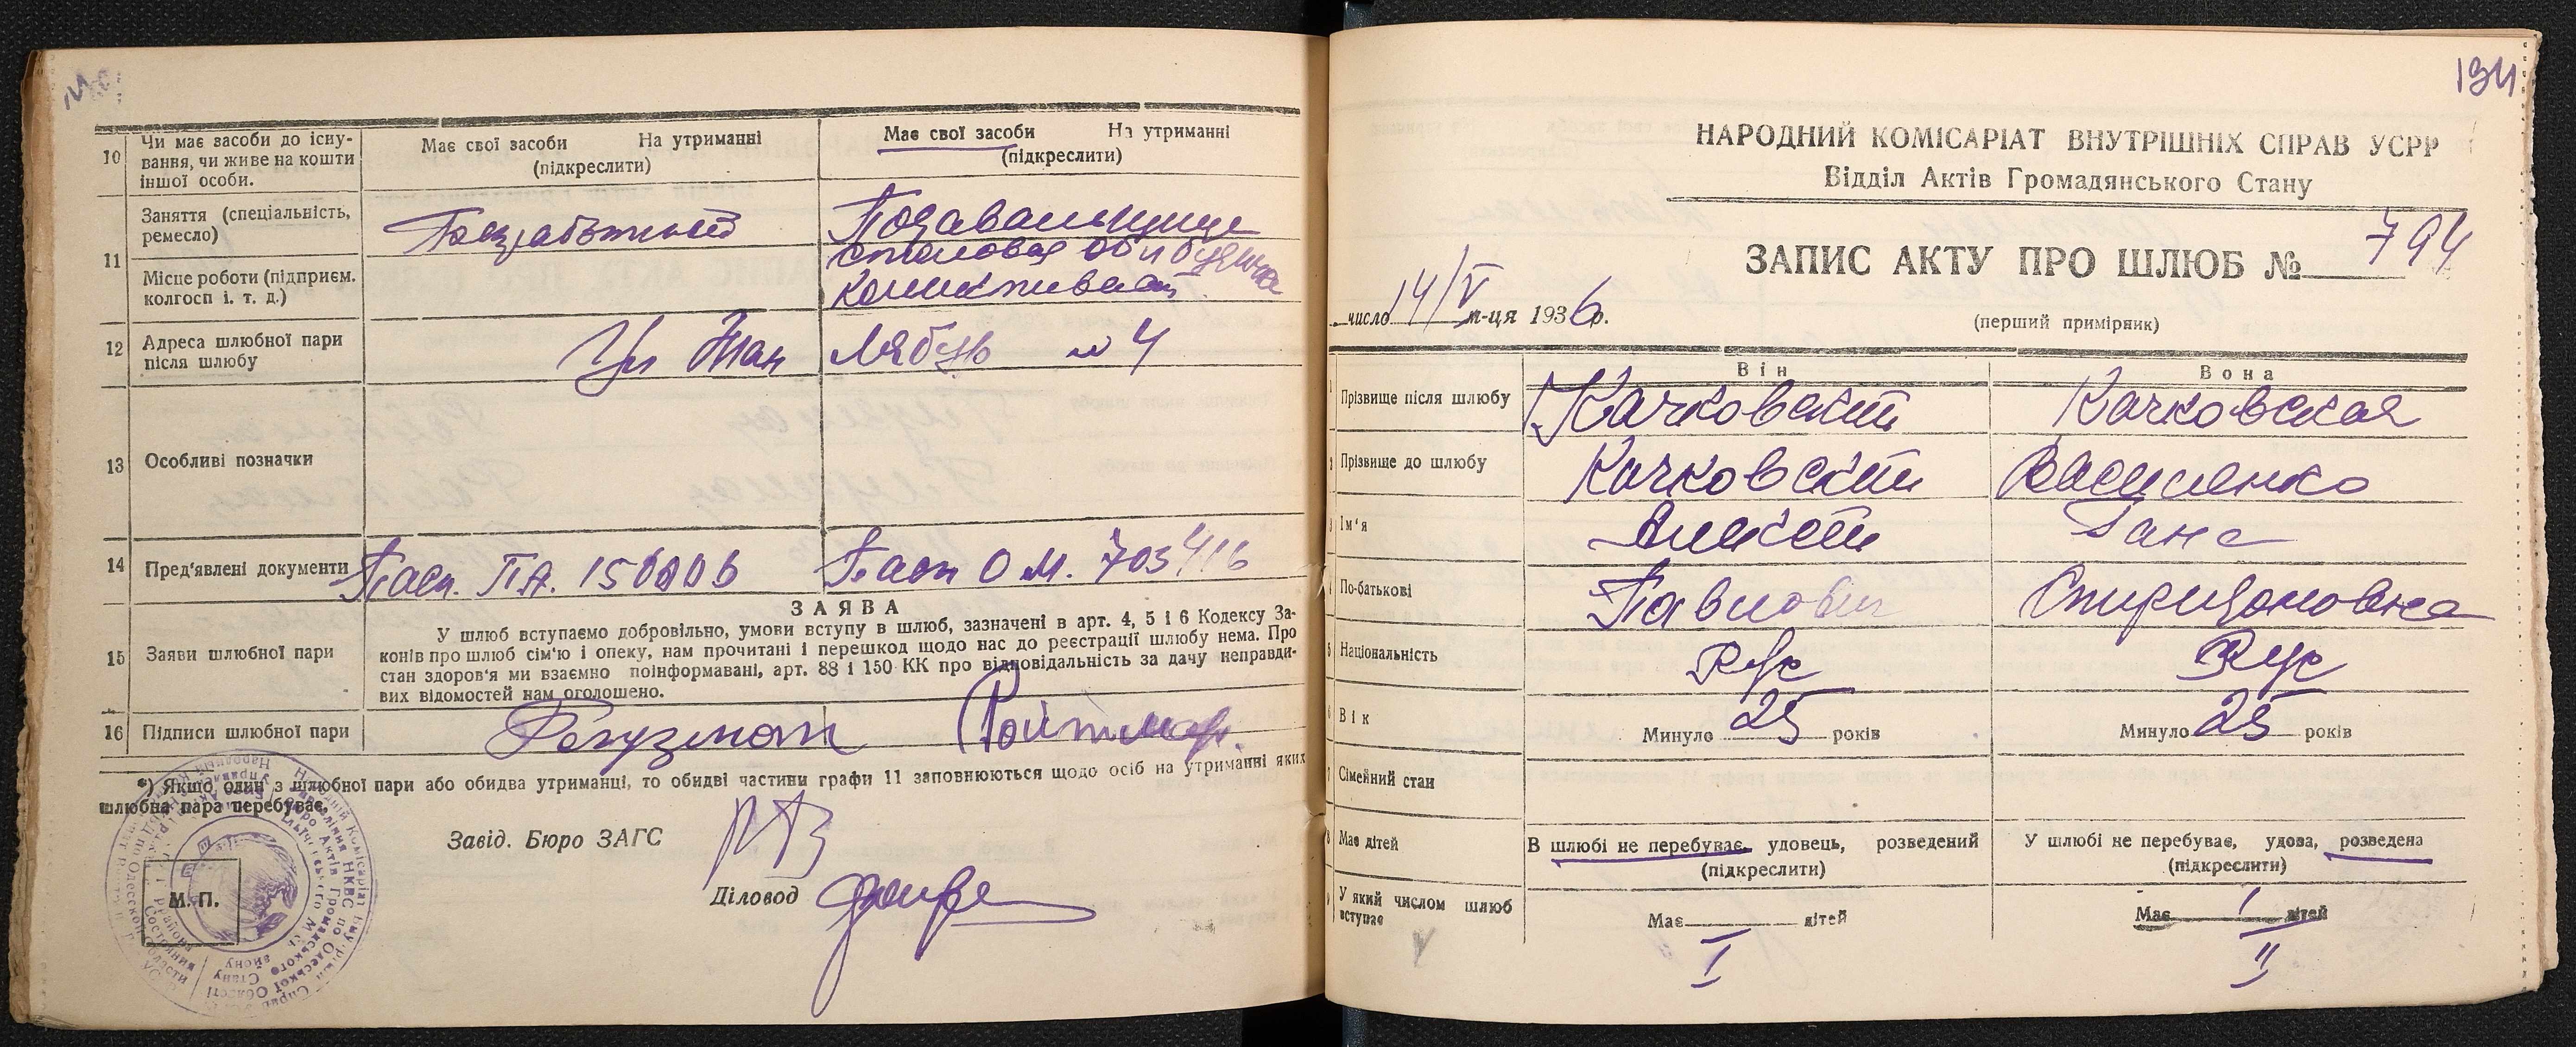 10 Чи має засоби до існу-
вання, чи живе на кошти
іншої особи.
Має свої засоби На утриманні
(підкреслити)
Має свої засоби На утриманні
(підкреслити)
11 Заняття (спеціальність,
ремесло)
Безработный
Подавальщица
Місце роботи (підприєм.
колгосп і. т. д.)
столовая
12 Адреса шлюбної пари
після шлюбу
Ул Жан Лябурб № 4
13 Особливі позначки
14 Пред'явлені документи
Пасп. ПА. 150006
Пасп О М. 703416
15 Заяви шлюбної пари
ЗАЯВА
У шлюб вступаємо добровільно, умови вступу в шлюб, зазначені в арт. 4, 5 і 6 Кодексу За-
конів про шлюб сім'ю і опеку, нам прочитані і перешкод щодо нас до реєстрації шлюбу нема. Про
стан здоров'я ми взаємно поінформавані, арт. 88 і 150 КК про відповідальність за дачу неправди-
вих відомостей нам оголошено.
16 Підписи шлюбної пари
Ройтман
*) Якщо один з шлюбної пари або обидва утриманці, то обидві частини графи 11 заповнюються щодо осіб на утриманні яких
шлюбна пара перебуває.
Завід. Бюро ЗАГС
Діловод
М. П.
194
НАРОДНИЙ КОМІСАРІАТ ВНУТРІШНІХ СПРАВ УСРР
Відділ Актів Громадянського Стану
ЗАПИС АКТУ ПРО ШЛЮБ № 794
число 14/V м-ця 1936 р.
(перший примірник)
Він Вона
Прізвище після шлюбу Качковский Качковская
Прізвище до шлюбу Качковский Василенко
Ім'я Алексей
По-батькові Павлович Спиридоновна
Національність
Вік Минуло 25 років Минуло 25 років
Сімейний стан
Має дітей
В шлюбі не перебуває, удовець, розведений
(підкреслити)
У шлюбі не перебуває, удова, розведена
(підкреслити)
У який числом шлюб
вступає
Має дітей
Має 1 дітей
I II